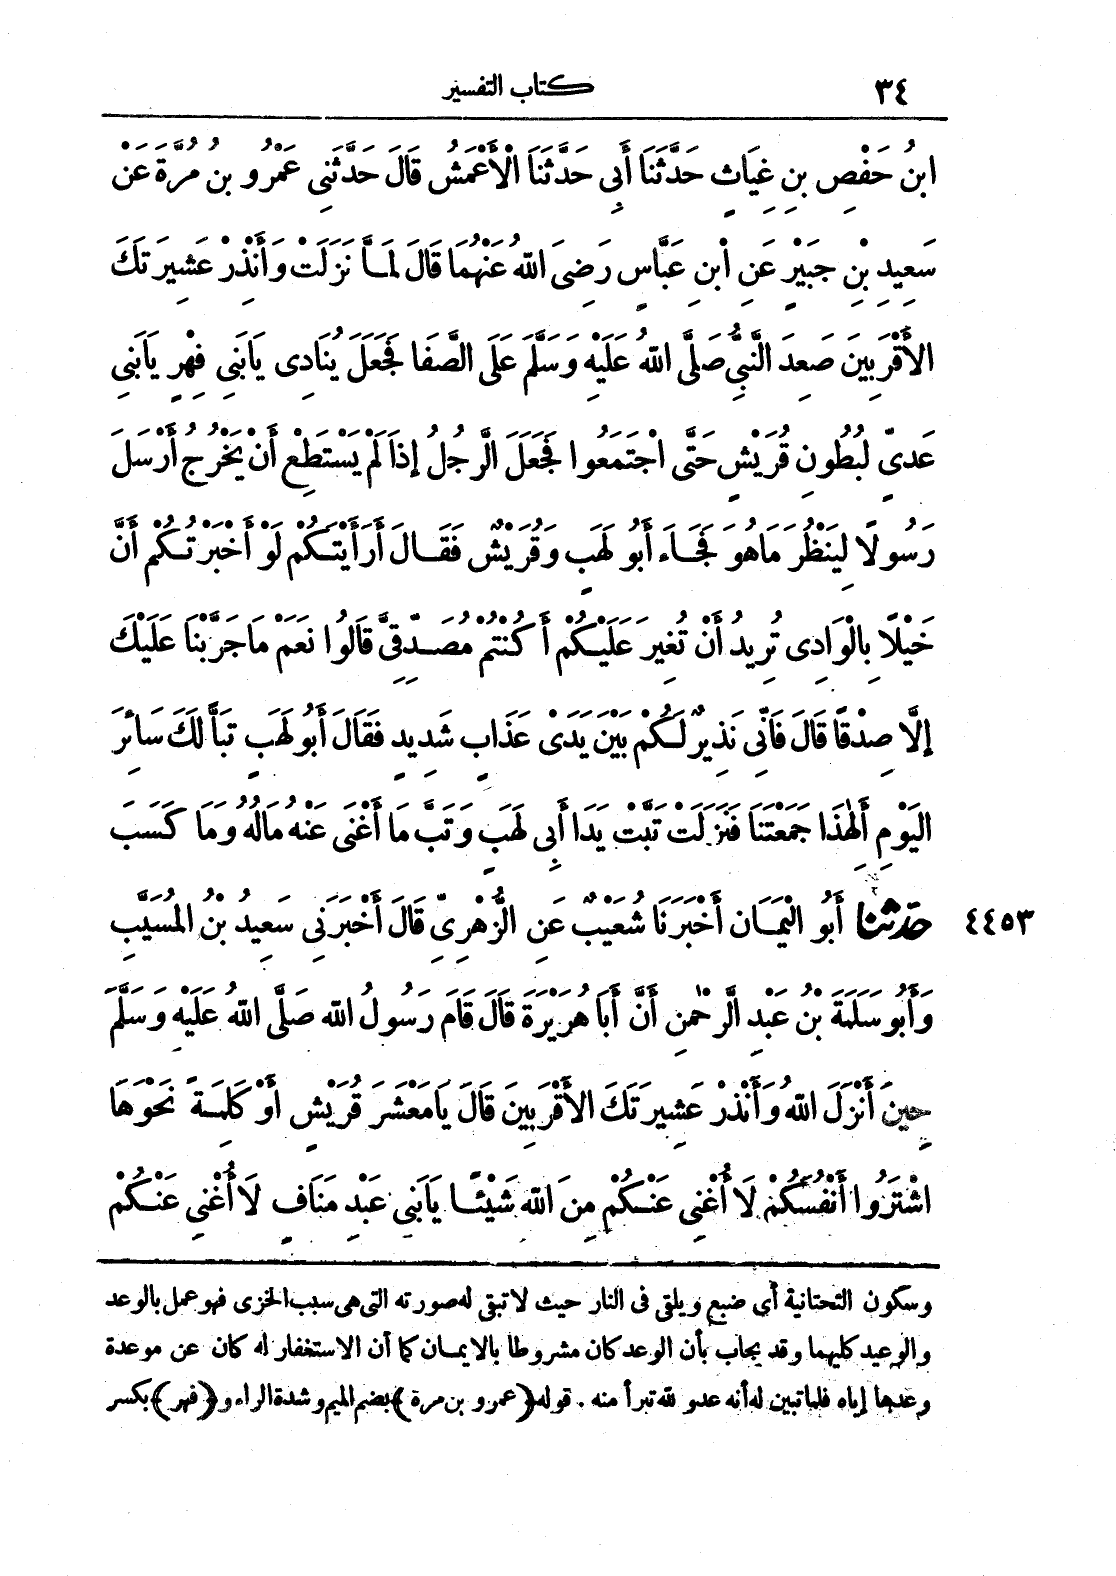 ٣٤ كتاب التفسير
ابنُ حَفْصِ بنِ غِيَاثٍ حَدَّثَنَا أَبِى حَدَّثَنَا الْأَعْمَشُ قَالَ حَدَّثَنِى عَمْرُو بنُ مُرَّةَ عَنْ
سَعِيدِ بْنِ جُبَيْرٍ عَنِ ابْنِ عَبَّاسٍ رَضِىَ اللهُ عَنْهُمَا قَالَ لَمَّا نَزَلَتْ وَأَنْذِرْ عَشِيرَتَكَ
الأَقْرَبِينَ صَعِدَ النَّبِىُّ صَلَّى اللهُ عَلَيْهِ وَسَلَّمَ عَلَى الصَّفَا فَجَعَلَ يُنَادِى يَابَنِى فِهْرٍ يَابَنِى
عَدِىٍّ لِبُطُونِ قُرَيْشٍ حَتَّى اجْتَمَعُوا فَجَعَلَ الرَّجُلُ إِذَا لَمْ يَسْتَطِعْ أَنْ يَخْرُجَ أَرْسَلَ
رَسُولًا لِيَنْظُرَ مَاهُوَ فَجَاءَ أَبُو لَهَبٍ وَقُرَيْشٌ فَقَالَ أَرَأَيْتَكُمْ لَوْ أَخْبَرْتُكُمْ أَنَّ
خَيْلًا بِالْوَادِى تُرِيدُ أَنْ تُغِيرَ عَلَيْكُمْ أَكُنْتُمْ مُصَدِّقِىَّ قَالُوا نَعَمْ مَاجَرَّبْنَا عَلَيْكَ
إِلَّا صِدْقًا قَالَ فَإِنِّى نَذِيرٌ لَكُمْ بَيْنَ يَدَىْ عَذَابٍ شَدِيدٍ فَقَالَ أَبُو لَهَبٍ تَبًّا لَكَ سَائِرَ
اليَوْمِ أَلِهٰذَا جَمَعْتَنَا فَنَزَلَتْ تَبَّتْ يَدَا أَبِى لَهَبٍ وَتَبَّ مَا أَغْنَى عَنْهُ مَالُهُ وَمَا كَسَبَ
٤٤٥٣ حَدَّثَنَا أَبُو اليَمَانِ أَخْبَرَنَا شُعَيْبٌ عَنِ الزُّهْرِىِّ قَالَ أَخْبَرَنِى سَعِيدُ بْنُ المُسَيَّبِ
وَأَبُو سَلَمَةَ بْنُ عَبْدِ الرَّحْمٰنِ أَنَّ أَبَا هُرَيْرَةَ قَالَ قَامَ رَسُولُ اللهِ صَلَّى اللهُ عَلَيْهِ وَسَلَّمَ
حِينَ أَنْزَلَ اللهُ وَأَنْذِرْ عَشِيرَتَكَ الأَقْرَبِينَ قَالَ يَامَعْشَرَ قُرَيْشٍ أَوْ كَلِمَةً نَحْوَهَا
اشْتَرُوا أَنْفُسَكُمْ لَا أُغْنِى عَنْكُمْ مِنَ اللهِ شَيْئًا يَابَنِى عَبْدِ مَنَافٍ لَا أُغْنِى عَنْكُمْ
وسكون التحتانية أى ضبع ويلقى فى النار حيث لاتبقى له صورته التى هى سبب الخزى فهو عمل بالوعد
والوعيد كليهما وقد يجاب بأن الوعد كان مشروطا بالايمان كما أن الاستغفار له كان عن موعدة
وعدها إياه فلما تبين له أنه عدو لله تبرأ منه . قوله (عمرو بن مرة) بضم الميم وشدة الراء و (فهر) بكسر